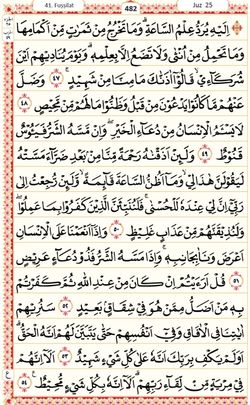 41. Fuṣṣilat 482 Juz 25
اِلَيْهِ يُرَدُّ عِلْمُ السَّاعَةِ ؕ وَمَا تَخْرُجُ مِنْ ثَمَرٰتٍ مِّنْ اَكْمَامِهَا
وَمَا تَحْمِلُ مِنْ اُنْثٰى وَلَا تَضَعُ اِلَّا بِعِلْمِهٖ ؕ وَيَوْمَ يُنَادِيْهِمْ اَيْنَ
شُرَكَآءِيْ ۙ قَالُوْۤا اٰذَنّٰكَ ۙ مَا مِنَّا مِنْ شَهِيْدٍ ۚ ٤٧ وَضَلَّ
عَنْهُمْ مَّا كَانُوْا يَدْعُوْنَ مِنْ قَبْلُ وَظَنُّوْا مَا لَهُمْ مِّنْ مَّحِيْصٍ ٤٨
لَا يَسْـَٔمُ الْاِنْسَانُ مِنْ دُعَآءِ الْخَيْرِ ؗ وَاِنْ مَّسَّهُ الشَّرُّ فَيَـُٔوْسٌ
قَنُوْطٌ ٤٩ وَلَئِنْ اَذَقْنٰهُ رَحْمَةً مِّنَّا مِنْۢ بَعْدِ ضَرَّآءَ مَسَّتْهُ
لَيَقُوْلَنَّ هٰذَا لِيْ ۙ وَمَاۤ اَظُنُّ السَّاعَةَ قَآئِمَةً ۙ وَّلَئِنْ رُّجِعْتُ اِلٰى
رَبِّيْۤ اِنَّ لِيْ عِنْدَهٗ لَلْحُسْنٰى ۚ فَلَنُنَبِّئَنَّ الَّذِيْنَ كَفَرُوْا بِمَا عَمِلُوْا ؗ
وَلَنُذِيْقَنَّهُمْ مِّنْ عَذَابٍ غَلِيْظٍ ٥٠ وَاِذَاۤ اَنْعَمْنَا عَلَى الْاِنْسَانِ
اَعْرَضَ وَنَاٰ بِجَانِبِهٖ ۚ وَاِذَا مَسَّهُ الشَّرُّ فَذُوْ دُعَآءٍ عَرِيْضٍ
٥١ قُلْ اَرَءَيْتُمْ اِنْ كَانَ مِنْ عِنْدِ اللّٰهِ ثُمَّ كَفَرْتُمْ
بِهٖ مَنْ اَضَلُّ مِمَّنْ هُوَ فِيْ شِقَاقٍۭ بَعِيْدٍ ٥٢ سَنُرِيْهِمْ
اٰيٰتِنَا فِي الْاٰفَاقِ وَفِيْۤ اَنْفُسِهِمْ حَتّٰى يَتَبَيَّنَ لَهُمْ اَنَّهُ الْحَقُّ ؕ
اَوَلَمْ يَكْفِ بِرَبِّكَ اَنَّهٗ عَلٰى كُلِّ شَيْءٍ شَهِيْدٌ ٥٣ اَلَاۤ اِنَّهُمْ
فِيْ مِرْيَةٍ مِّنْ لِّقَآءِ رَبِّهِمْ ؕ اَلَاۤ اِنَّهٗ بِكُلِّ شَيْءٍ مُّحِيْطٌ ٥٤